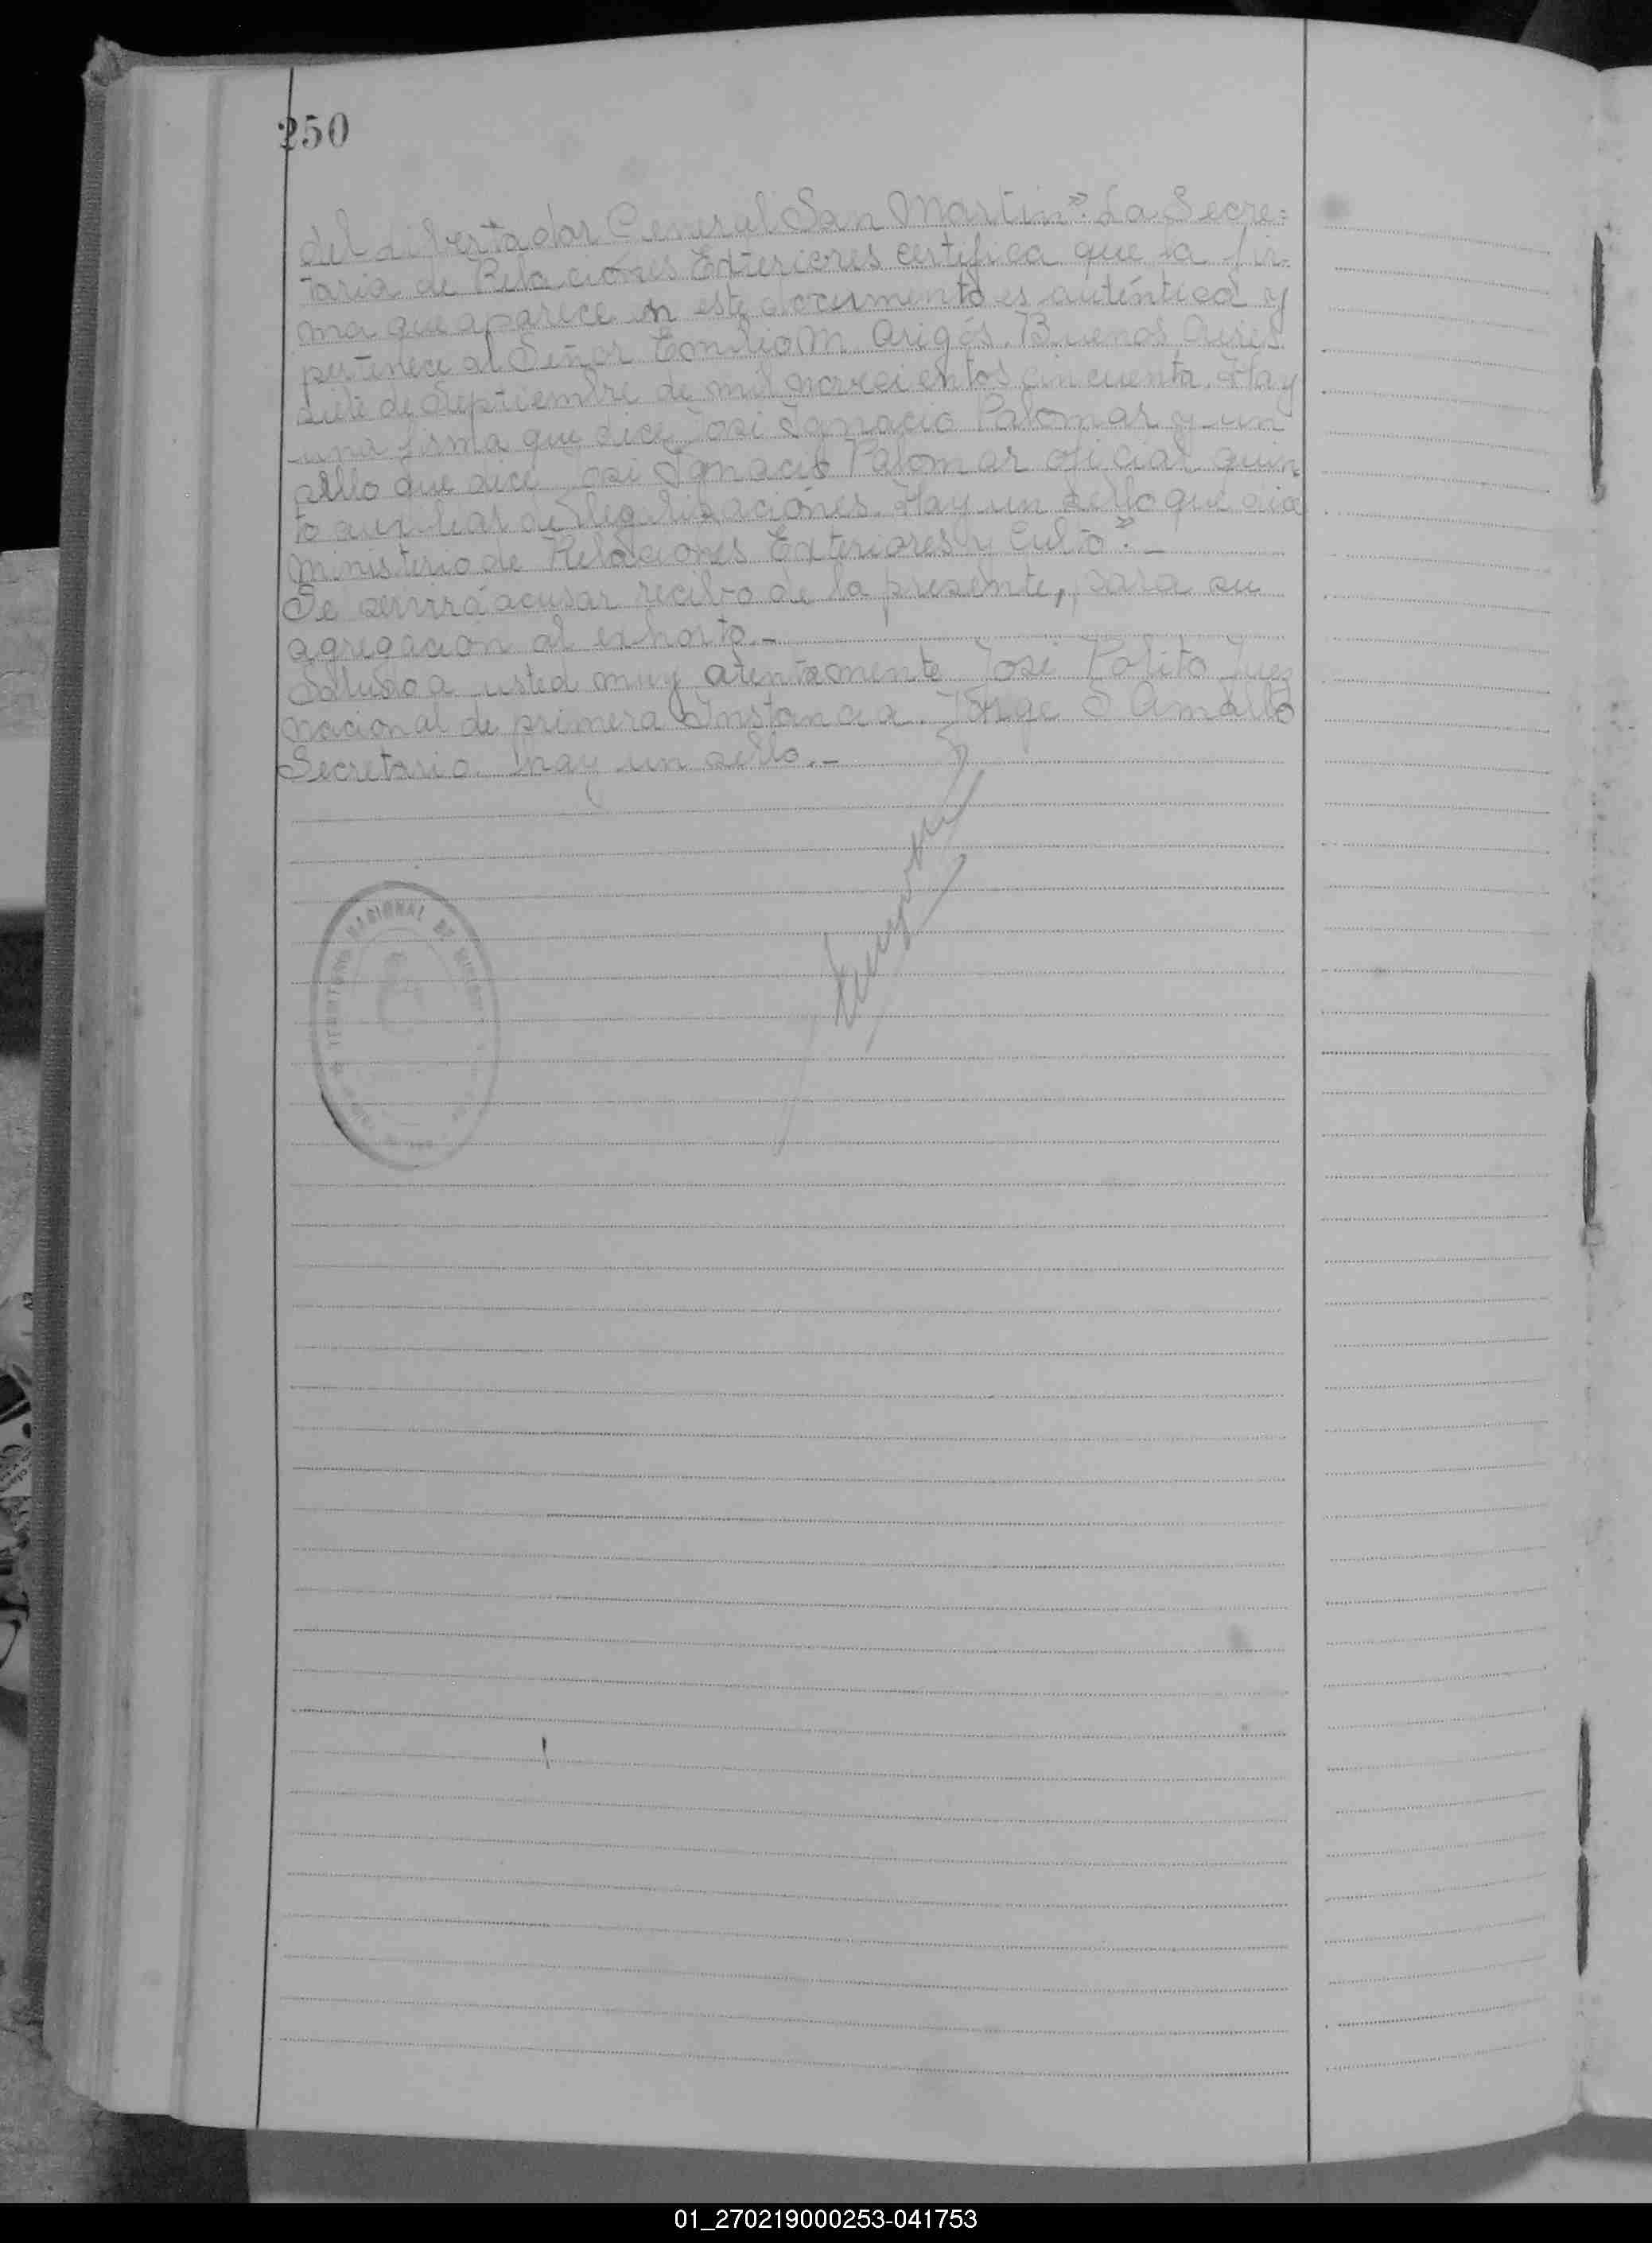 250
del Libertador General San Martin". La Secre=
taria de Relaciónes Exteriores certifica que la fir=
ma que aparece en este documento es auténtica y
pertenece al Señor Emilio M. Arigós. Buenos Aires
siete de Septiembre de mil novecientos cincuenta. Hay
una firma que dice José Ignacio Palomar y un
sello que dice José Ignacio Palomar oficial quin
to auxiliar de legalizaciónes. Hay un sello que dice
Ministerio de Relaciones Exteriores y Culto". _
Se servirá acusar recibo de la presente, para su
agregacion al exhorto._
Saludo a usted muy atentamente José Polito Juez
nacional de primera Instancia. Jorge S Amallo
Secretario. hay un sello._
TERRITORIO NACIONAL DE
01_270219000253-041753